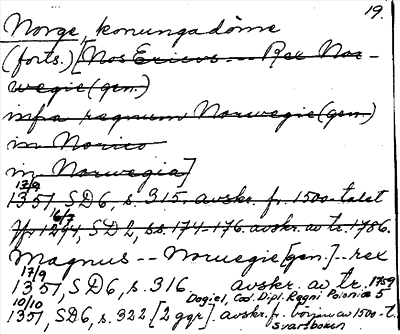 19.
Norge, konungadöme
(forts.) [Nos Ericus -- Rex Nor-
wegie (gen.)
infra regnum Norwegie (gen.)
in Norico
in Norwegia]
17/9
1351, SD6, s. 315. avskr. fr. 1500-talet
16/7
1294, SD2, ss. 174-176. avskr. av tr. 1786.
Magnus -- Noruegie [gen.] -- rex
17/9
1351, SD6, s. 316. avskr. av tr. 1759
Dogiel, Cod. Dipl. Regni Polonie 5
10/10
1351, SD6, s. 322 [2 ggr]. avskr. fr. början av 1500-t.
Svartboken